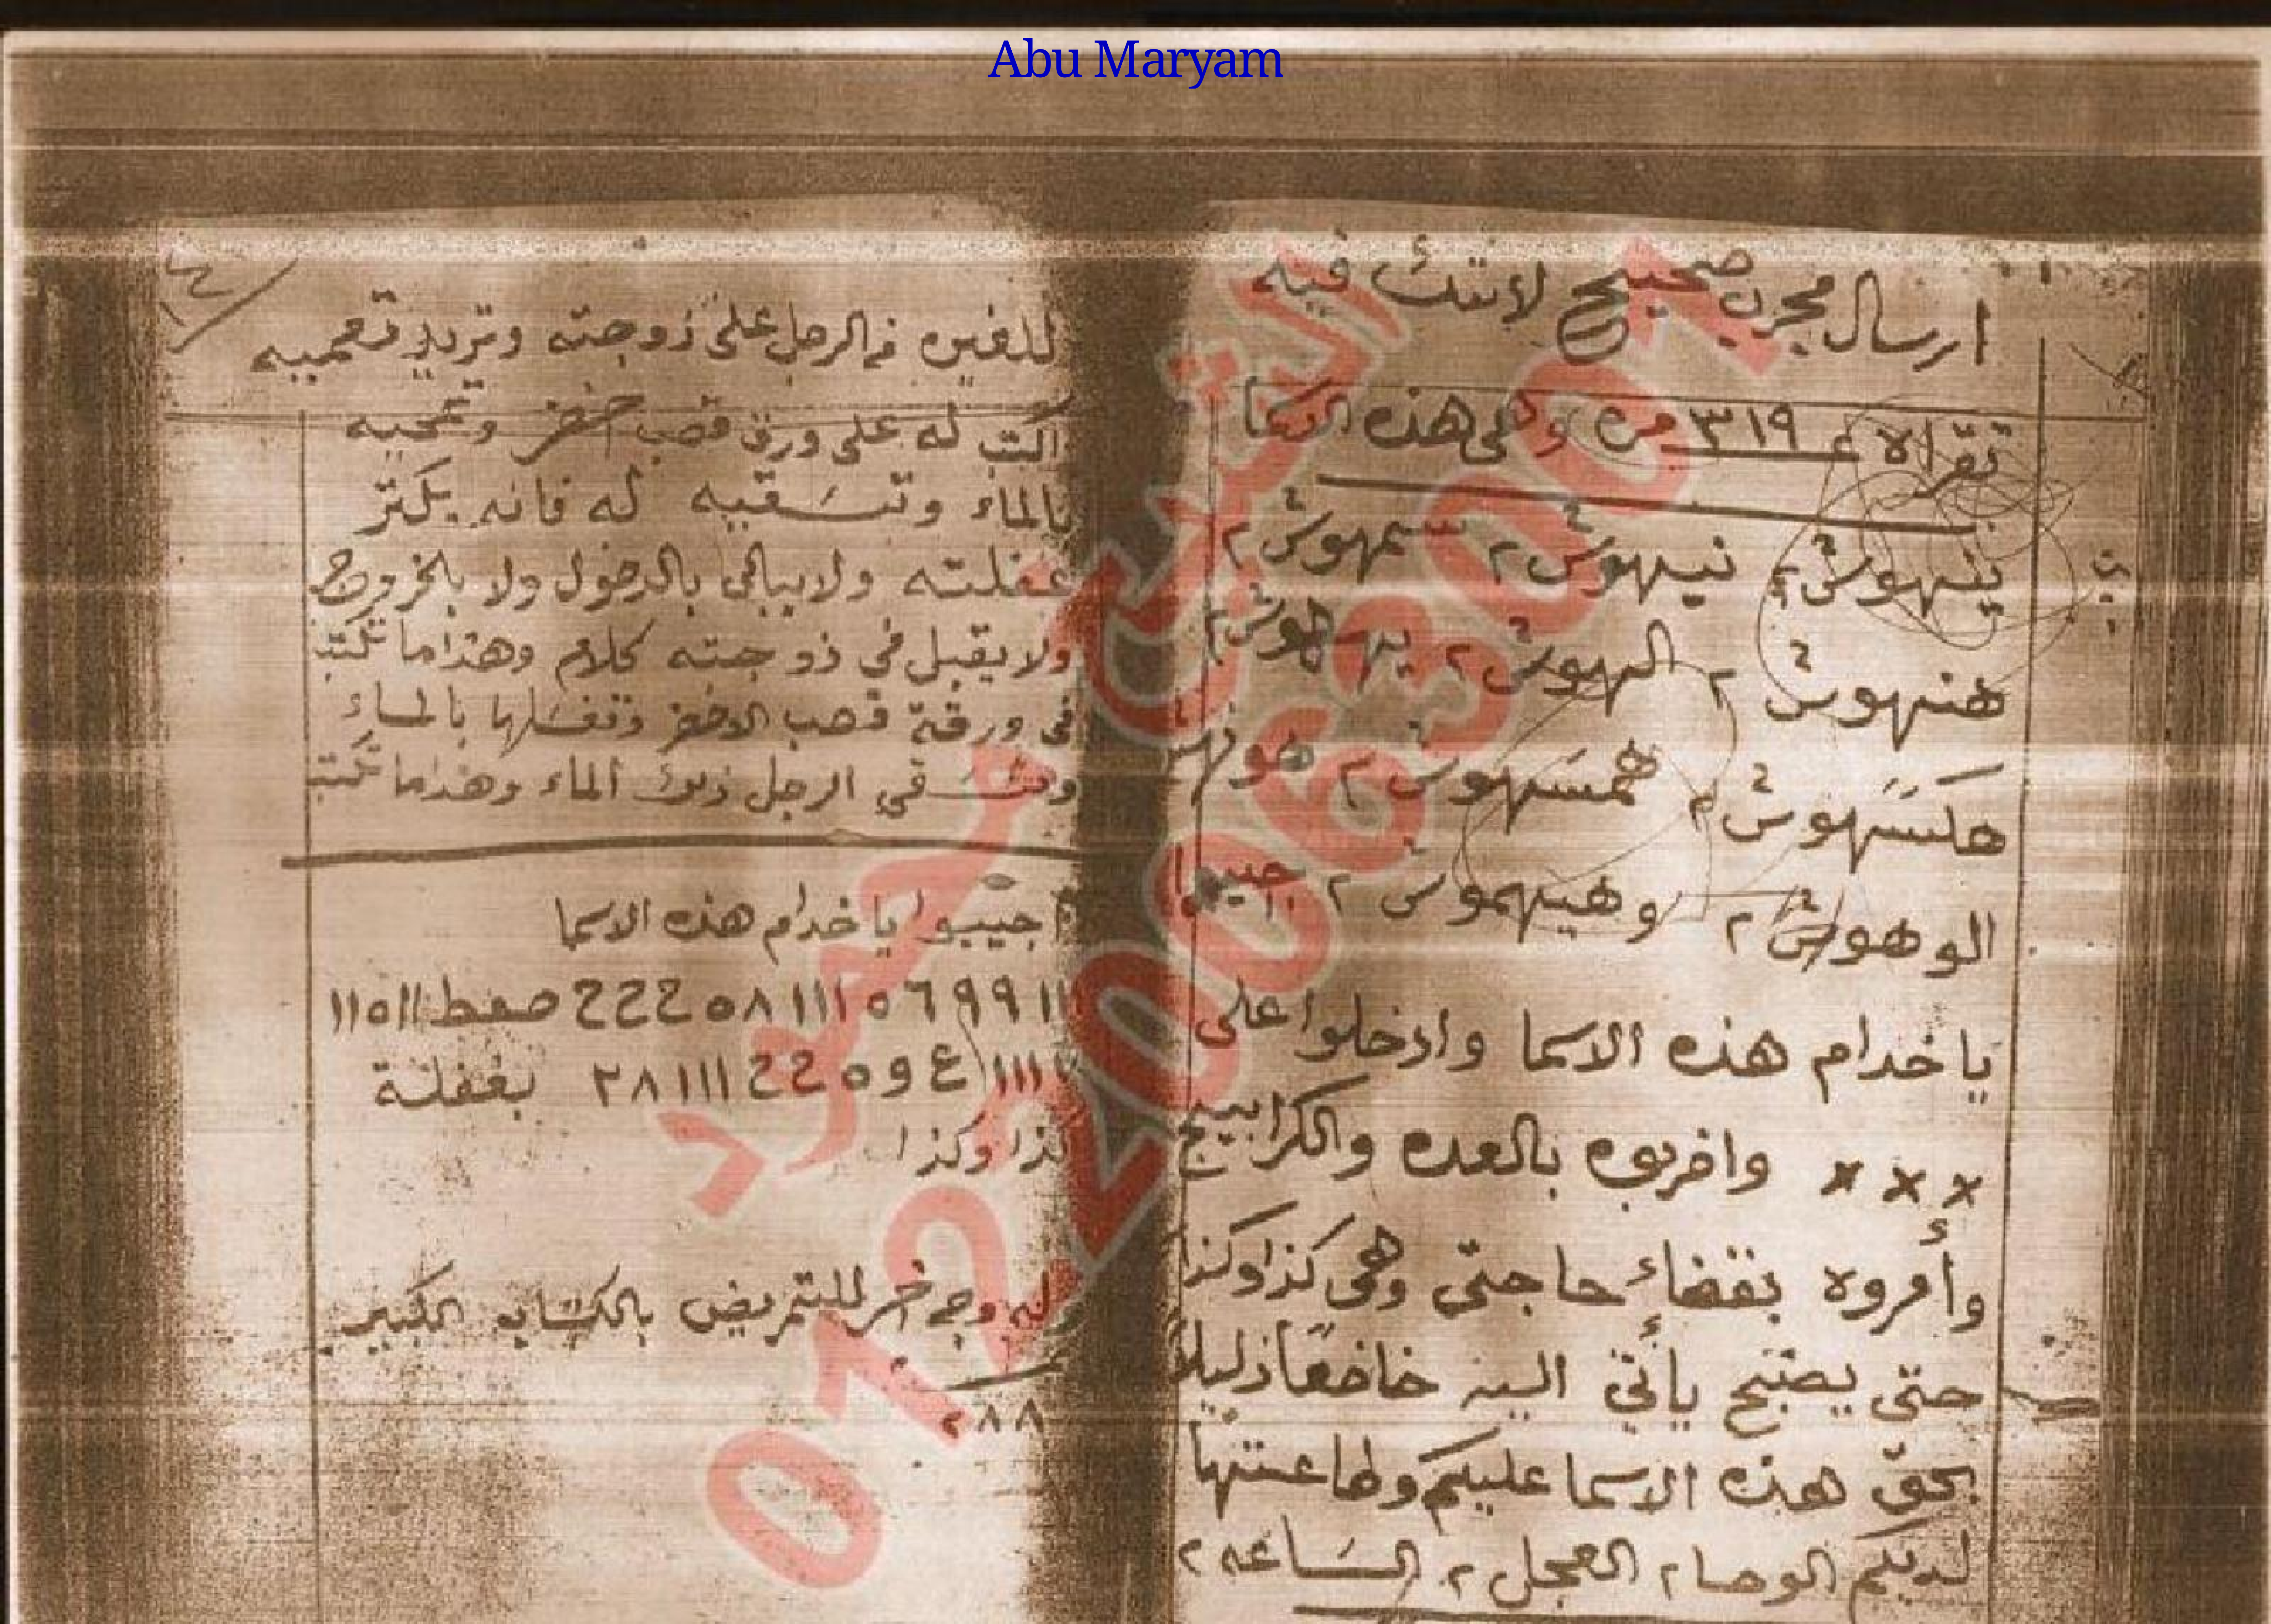 Abu Maryam
ارسال مجرب صحيح لا شك فيه
تقرا لا ع ٣١٩ مره وهى هذه الاسما
ينهوش ٢ نيهوش ٢ سمهوش ٢
هنهوش ٢ الهوش ٢ يهـ هوش ٢
هلشهوش ٢ همشهوش ٢
الوهوش ٢ وهيهموش ٢ اجيبوا
يا خدام هذه الاسما وادخلوا على
××× واضربوه بالعده والكرابيج
وأمروه بقضاء حاجتى وهى كذا وكذا
حتى يصبح يأتي اليه خاضعاً ذليلاً
بحق هذه الاسما عليكم وطاعتها
لديكم الوحا ٢ العجل ٢ الساعه ٢
١٤
للغيره فى الرجل على زوجته وتريد تعميه
اكتب له على ورق قصب اخضر وتمحيه
بالماء وتسقيه له فانه يكتر
غفلته ولا يبالى بالدخول ولا بالخروج
ولا يقبل فى زوجته كلام وهذا ما تكتب
فى ورقة قصب الاخضر وتغسلها بالماء
وتسقي الرجل ذلك الماء وهذا ما تكتب
اجيبوا يا خدام هذه الاسما
١١ ٩٩ ٦ ٥ ١١١ ٥٨ ح ح ح صعط ١١٥١١
١١١١ ع و ٥ ح ح ١١١ ٢٨ بغفلة
كذا وكذا
وله وجه اخر للتمريض بالكتاب الكبير
٢٨٨
الشيخ محمود
01220063001